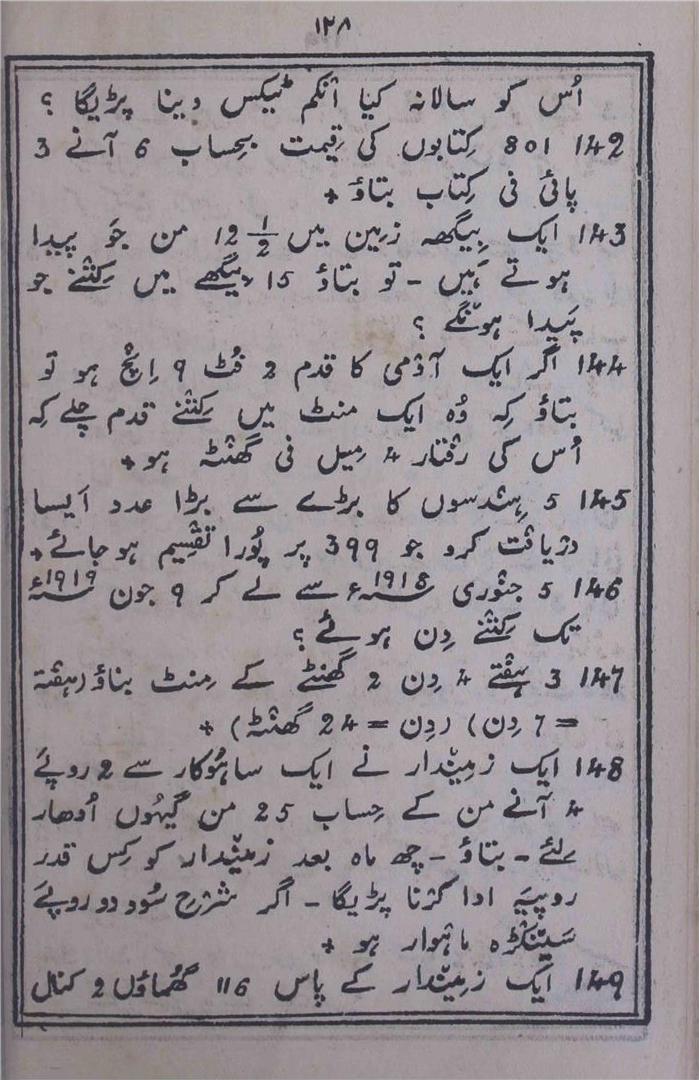 ۱۲۸
اُس کو سالانہ کیا انکم ٹیکس دینا پڑیگا ؟
142 801 کِتابوں کی قِیمت بحِساب 6 آنے 3
پائی فی کِتاب بتاؤ +
143 ایک بِیگھہ زمین میں 12 1/2 من جَو پیدا
ہوتے ہَیں - تو بتاؤ 15 بیگھے میں کِتنے جو
پَیدا ہونگے ؟
144 اگر ایک آدمی کا قدم 2 فُٹ 9 اِنچ ہو تو
بتاؤ کِہ وُہ ایک منٹ میں کِتنے قدم چلے کِہ
اُس کی رفتار 4 مِیل فی گھنٹہ ہو +
145 5 ہِندسوں کا بڑے سے بڑا عدد اَیسا
دریافت کرو جو 399 پر پُورا تقسِیم ہو جائے +
146 5 جنوری 1918ء سے لے کر 9 جون 1919ء
تک کِتنے دِن ہوئے ؟
147 3 ہفتے 4 دِن 2 گھنٹے کے مِنٹ بناؤ (ہفتہ
= 7 دِن) (دِن = 24 گھنٹہ) +
148 ایک زمِیندار نے ایک ساہُوکار سے 2 روپئے
4 آنے من کے حِساب 25 من گیہُوں اُدھار
لِئے - بتاؤ - چھ ماہ بعد زمِیندار کو کِس قدر
روپیَہ ادا کرنا پڑیگا - اگر شرح سُود دو روپئے
سَینکڑہ ماہوار ہو +
149 ایک زمِیندار کے پاس 116 گھُماؤں 2 کنال